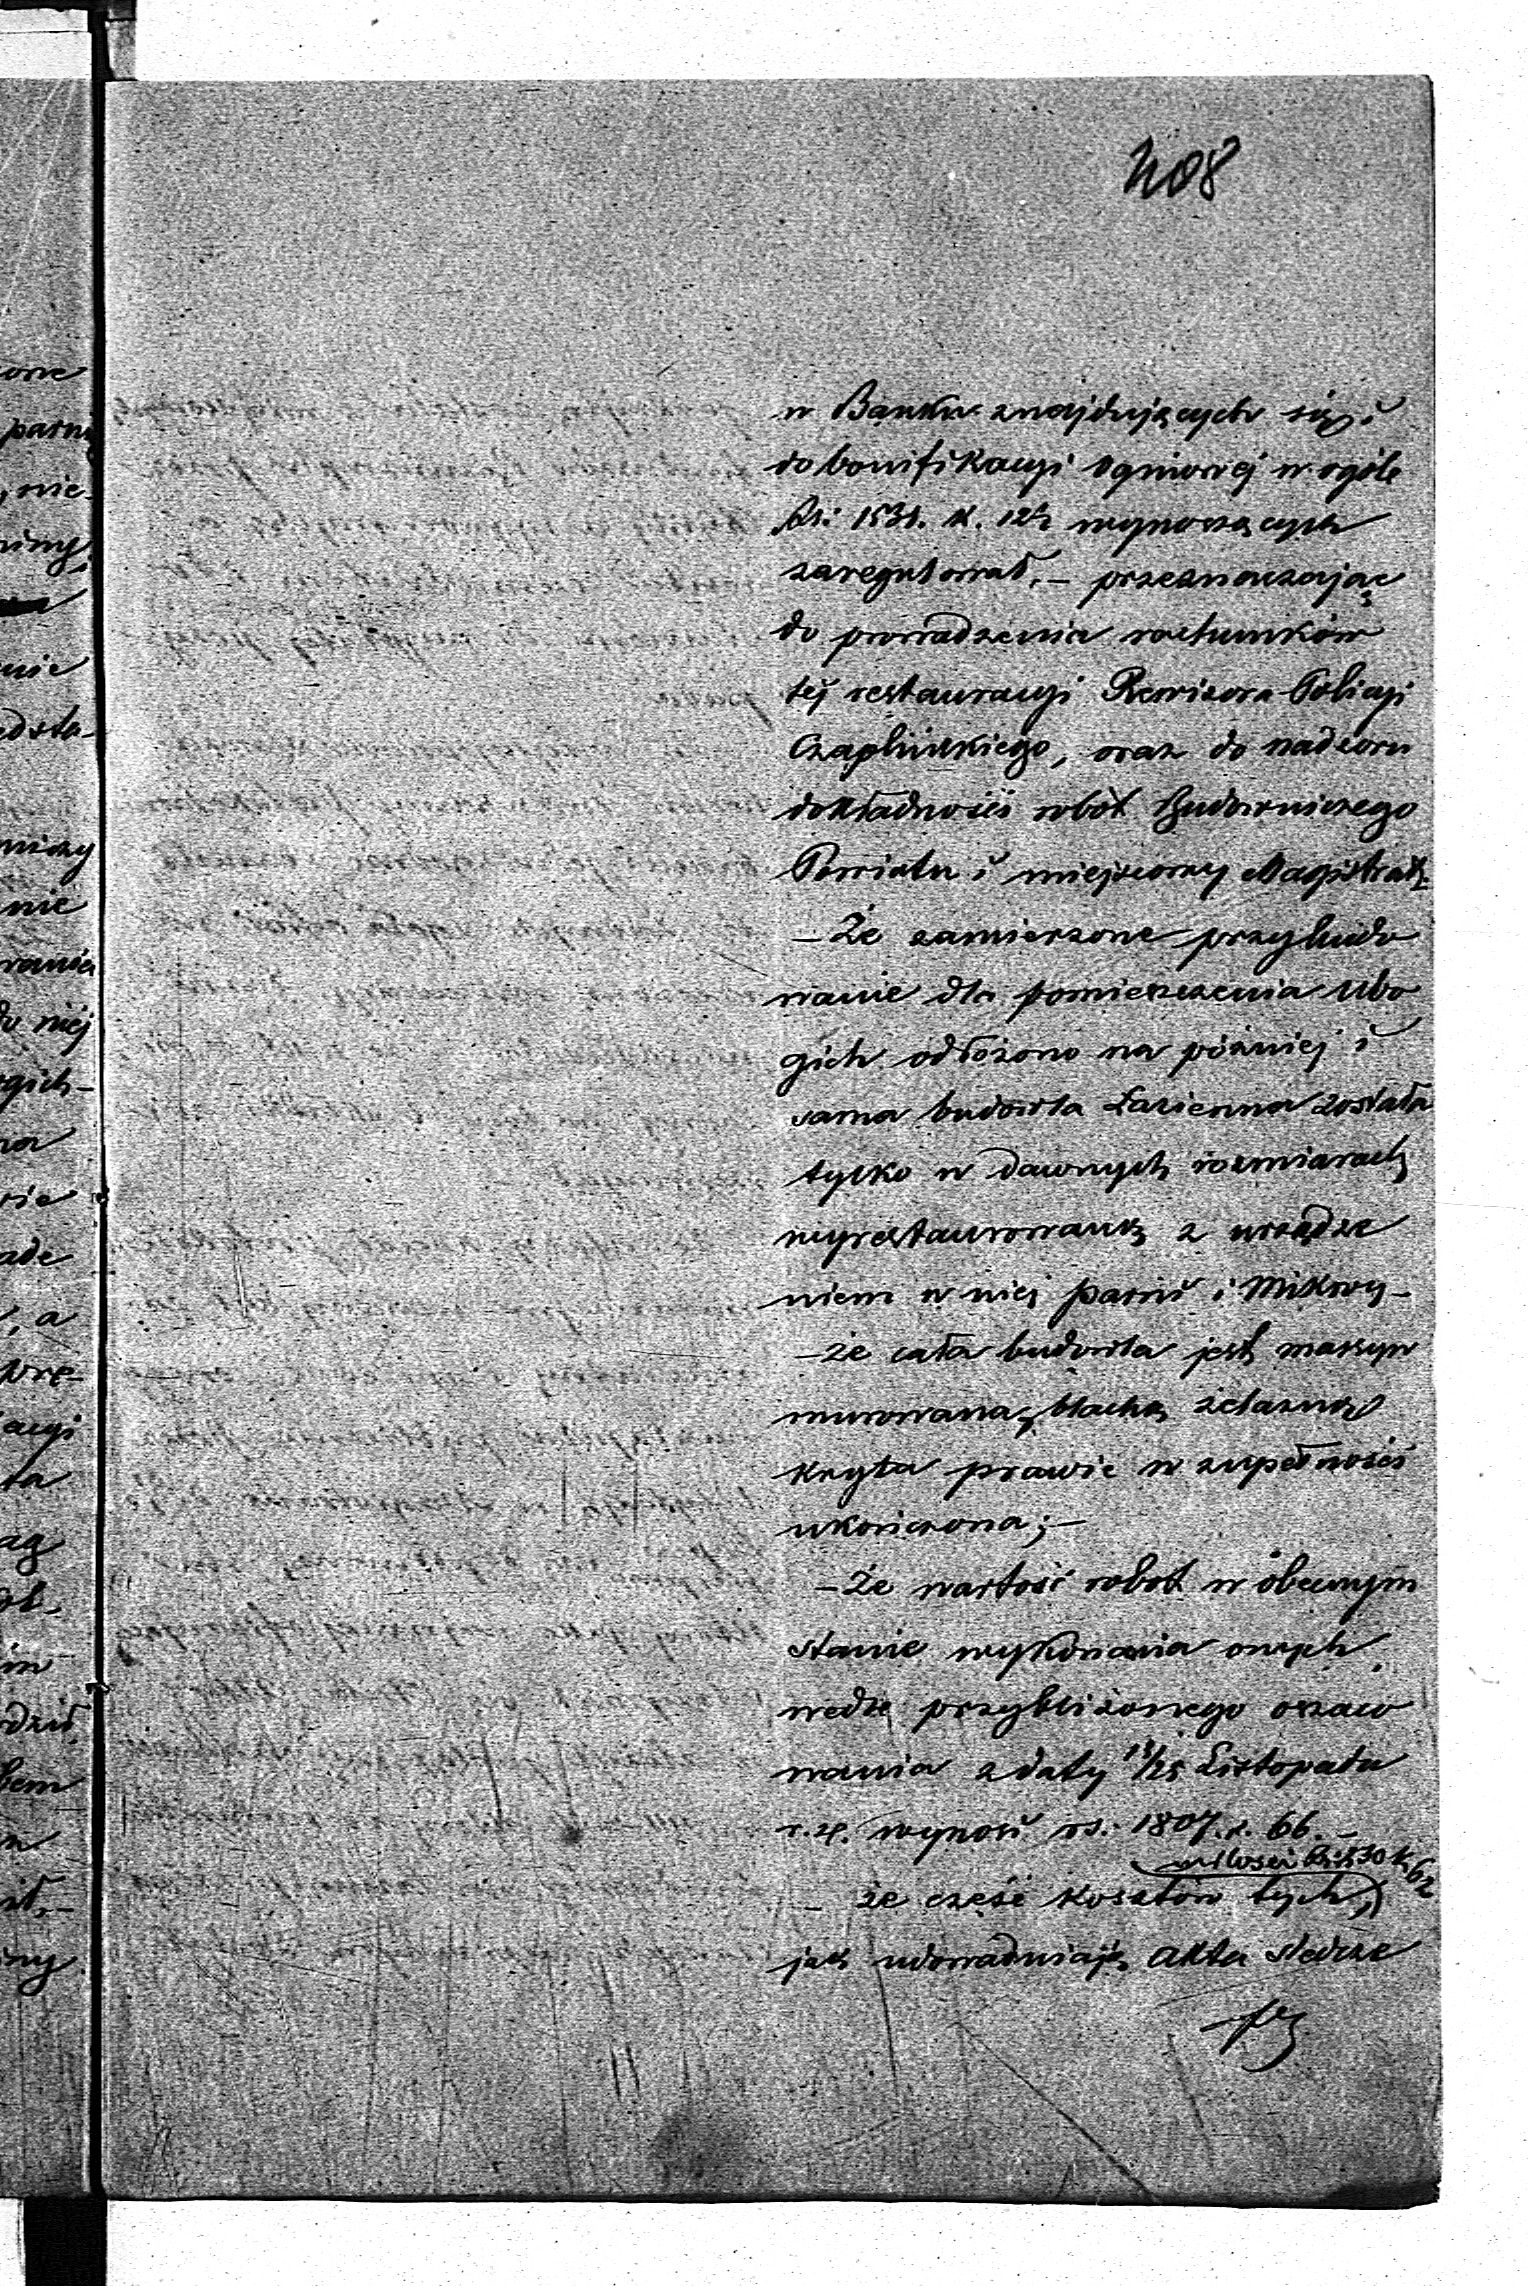 408
w Banku znajdujących się i
do bonifikacyi ogniowej w ogóle
Rs: 1531. k. 12½ wynoszących
zaregulował, – przeznaczając
do prowadzenia rachunków
téj restauracyi Rewizora Policyi
Czaplińskiego, oraz do nadzoru
dokładności robót Budowniczego
Powiatu i miejscowy Magistrat.
– Że zamierzone przybudo
wanie dla pomieszczenia ubo
gich odłożono na później i
sama budowla Łazienna została
tylko w dawnych rozmiarach
wyrestaurowaną z urządze
niem w niej parni i Mikwy –
– że cała budowla jest massyw
murowana, blachą żelazną
kryta prawie w zupełności
ukończona; –
– Że wartość robót w obecnym
stanie wykonania onych
wedle przybliżonego oszaco
wania z daty 13/25 Listopada
r. z. wynosi rs: 1807. k. 66. –
w ilości Rs:
– że część kosztów tych
jak udowadniają Akta Śledcze